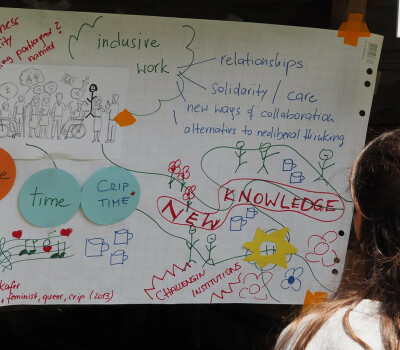 ness
ity
ing portrayed?
named
inclusive
work
relationships
solidarity / care
new ways of collaboration
alternatives to neoliberal thinking
e
time
CRIP
TIME
NEW
KNOWLEDGE
CHALLENGIN
INSTITUTIONS
kafir
, feminist, queer, crip (2013)